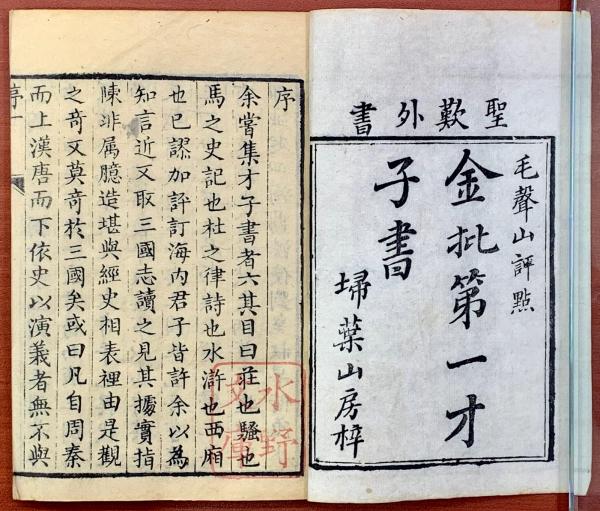 聖歎外書
毛聲山評點
金批第一才
子書
埽葉山房梓
序
余嘗集才子書者六其目曰莊也騷也
馬之史記也杜之律詩也水滸也西廂
也已謬加評訂海內君子皆許余以為
知言近又取三國志讀之見其據實指
陳非属臆造堪與經史相表裡由是觀
之奇又莫奇於三國矣或曰凡自周秦
而上漢唐而下依史以演義者無不與
序一
水野
文庫